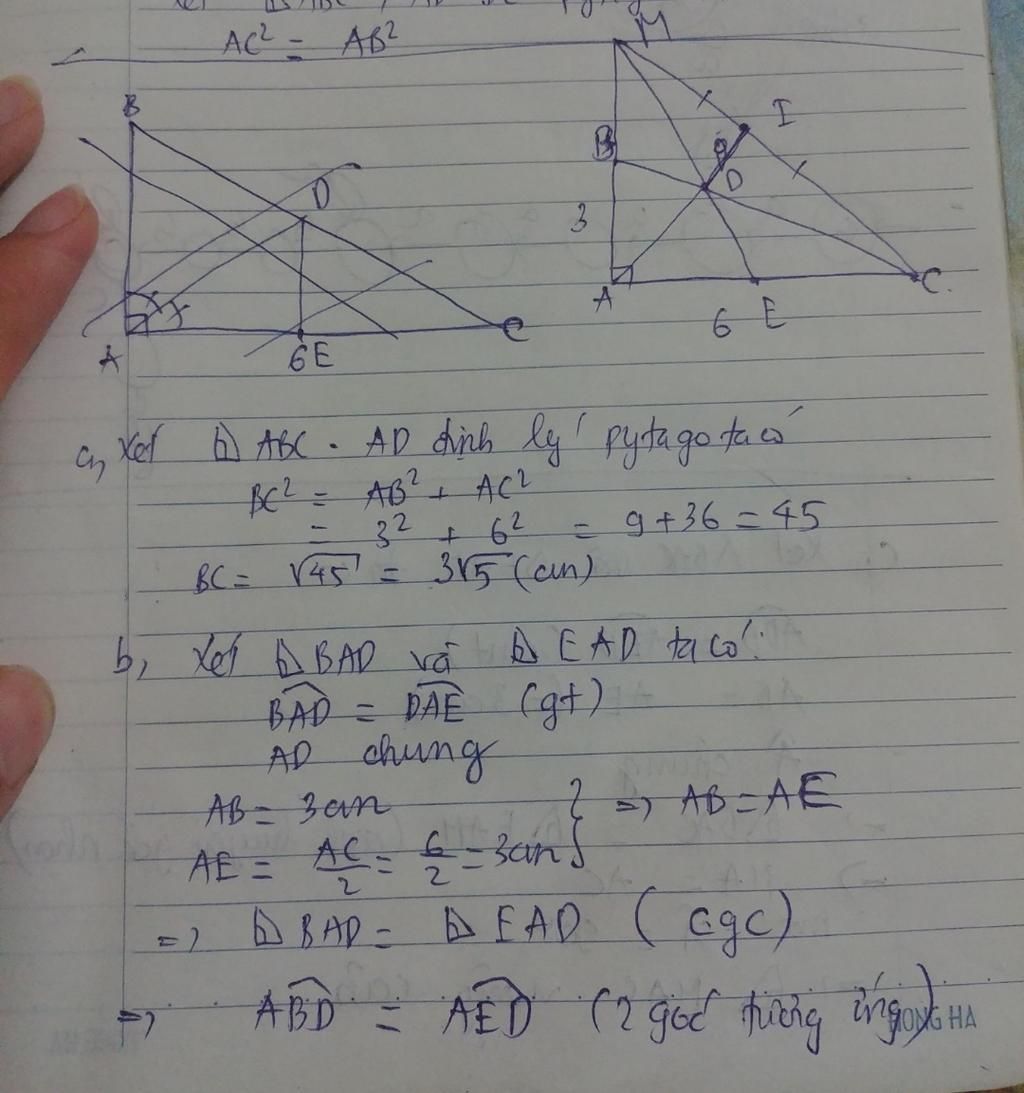 AC² = AB²
M
B
D
A
6E
C
I
B
9
D
3
A
6
E
C.
a, Xét △ ABC . AD định lý pytago ta có
BC² = AB² + AC²
= 3² + 6² = 9 + 36 = 45
BC = √45 = 3√5 (cm)
b, Xét △ BAD và △ EAD ta có:
BAD = DAE (gt)
AD chung
AB = 3cm
AE = AC/2 = 6/2 = 3cm } => AB = AE
=> △ BAD = △ EAD (cgc)
=> ABD = AED (2 góc tương ứng)
HONG HA